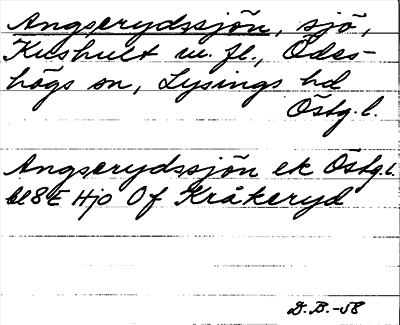 Angserydssjön, sjö,
Kushult m. fl., Ödes-
högs sn, Lysings hd
Östg. l.
Angserydssjön ek Östg. l.
bl 8E Hjo Of Kråkeryd
D. B. -58